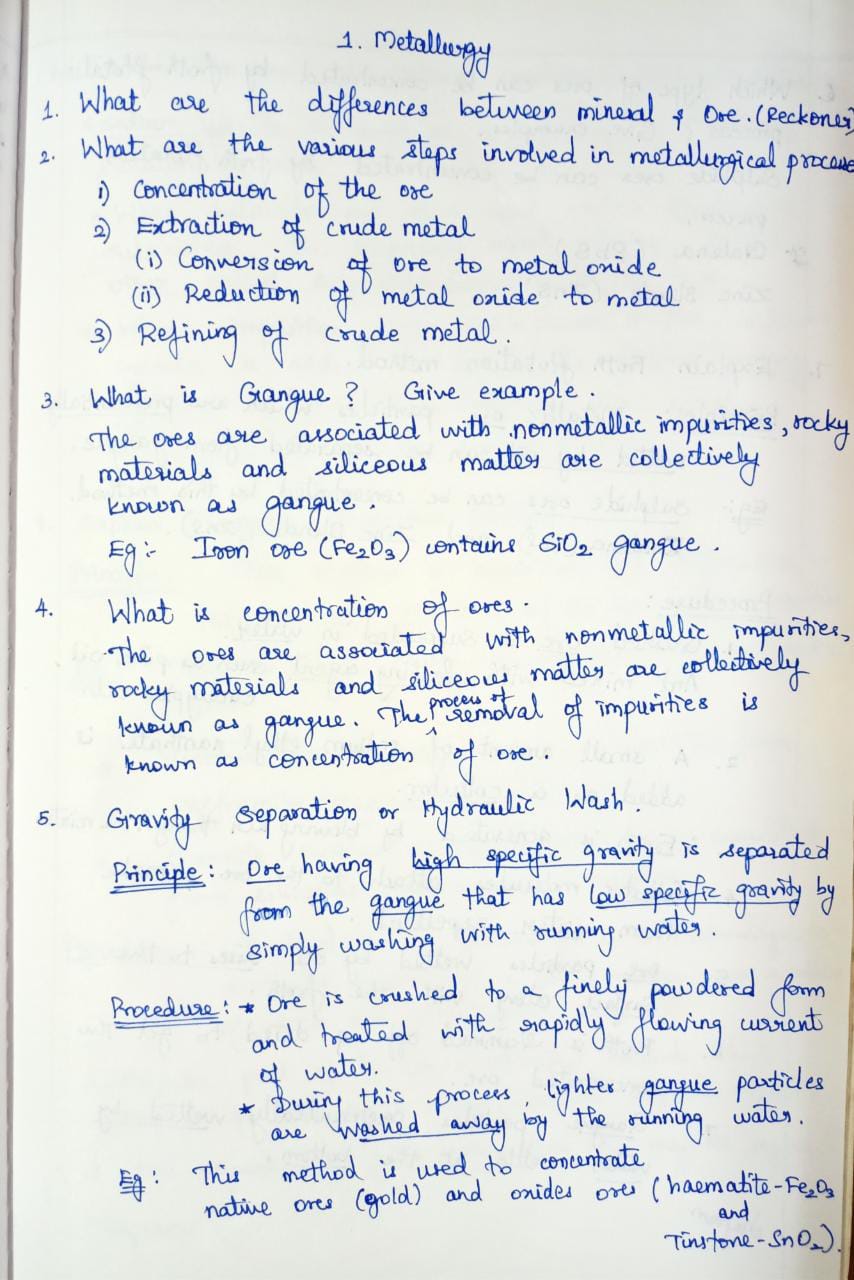 1. Metallurgy
1. What are the differences between mineral & Ore. (Reckoner)
2. What are the various steps involved in metallurgical process
1) Concentration of the ore
2) Extraction of crude metal
(i) Conversion of ore to metal oxide
(ii) Reduction of metal oxide to metal
3) Refining of crude metal.
3. What is Gangue? Give example.
The ores are associated with nonmetallic impurities, rocky
materials and siliceous matter are collectively
known as gangue.
Eg:- Iron ore (Fe₂O₃) contains SiO₂ gangue.
4. What is concentration of ores.
The ores are associated with nonmetallic impurities,
rocky materials and siliceous matter are collectively
known as gangue. The process of removal of impurities is
known as concentration of ore.
5. Gravity Separation or Hydraulic Wash.
Principle: Ore having high specific gravity is separated
from the gangue that has low specific gravity by
simply washing with running water.
Procedure: * Ore is crushed to a finely powdered form
and treated with rapidly flowing current
of water.
* During this process, lighter gangue particles
are washed away by the running water.
Eg: This method is used to concentrate
native ores (gold) and oxides ores (haematite-Fe₂O₃
and
Tinstone-SnO₂).